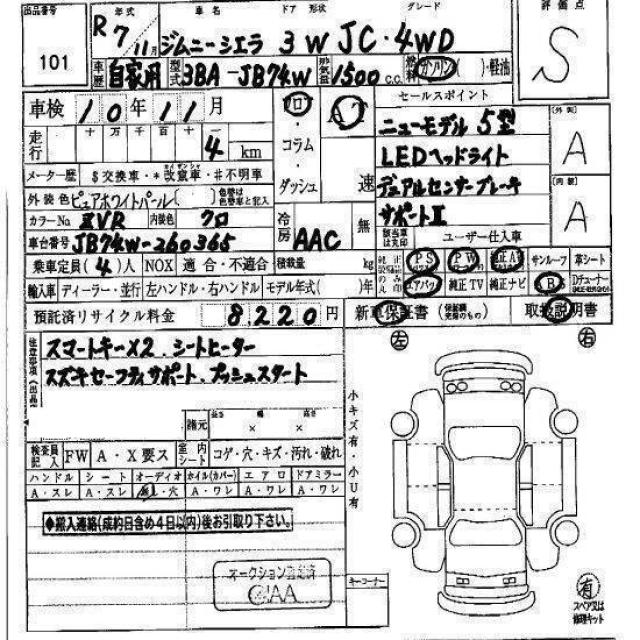 出品番号
101
年式 車名 ドア 形状 グレード
R7 11月 ジムニーシエラ 3W JC・4WD
評価点
S
車歴 自家用 型式 3BA-JB74W 排気量 1500 C.C. 燃料 ガソリン ( )・軽油
車検 10年11月
走行 十 万 千 百 十 4 km
メーター歴 $交換車・*改竄車・#不明車
外装色 ピュアホワイトパール( ) 色替は色替車と記入
カラーNo ZVR 内装色 クロ
車台番号 JB74W-260365
フロ・コラム・ダッシュ
AT 速
冷房 AAC 無
セールスポイント
ニューモデル 5型
LEDヘッドライト
デュアルセンサーブレーキ
サポートⅡ
[外装]
A
[内装]
A
該当車は丸印 ユーザー仕入車
乗車定員(4)人 NOX 適合・不適合 積載量 kg
PS PW サンルーフ 革シート
輸入車 ディーラー・並行 左ハンドル・右ハンドル モデル年式( )年
エアバッグ 純正TV 純正ナビ Dチューナー
預託済リサイクル料金 8,220円
新車保証書 取扱説明書
注意事項
スマートキー×2. シートヒーター
スズキセーフティサポート. プッシュスタート
諸元 長さ 幅 高さ
× ×
検査員記入 FW A・X要ス 室内シート コゲ・穴・キズ・汚れ・破れ
ハンドル シート オーディオ ホイル(カバー) エアロ ドアミラー
A・スレ A・スレ 無・穴 A・ワレ A・ワレ A・ワレ
◆搬入連絡(成約日含め4日以内)後お引取り下さい。
オークション査定済
小キズ有・小U有
キーコーナー
左
右
有
スペア又は
修理キット